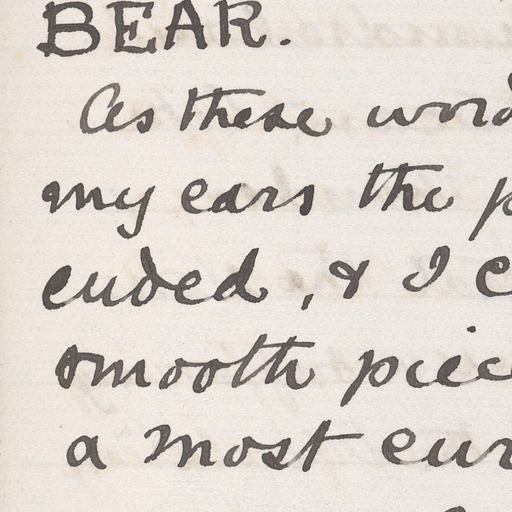 BEAR.
As these word
my ears the p
ended, & I c
smooth piec
a most cur